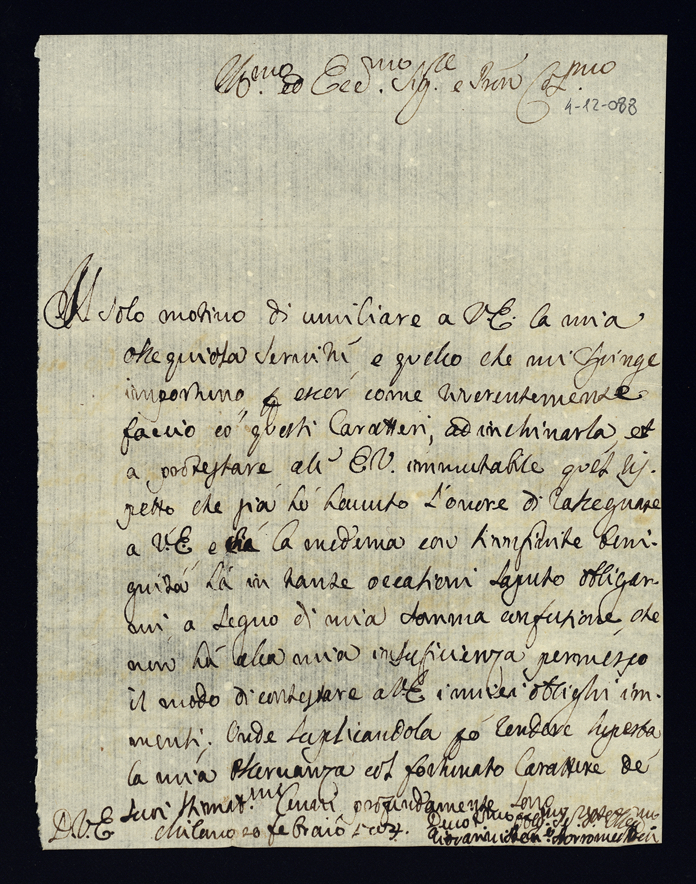 Ill.mo ed Ecc.mo Sig.re e Pron Col.mo
4-12-088
Il solo motivo di umiliare a V.E. la mia
ossequiosa servitù, e quello che mi spinge
importuno esser come riverentemente
faccio có questi Caratteri, ad inchinarla, et
a protestare all' E.V. immutabile quel ris-
petto che già hó havuto l'onore di rassegnare
a V.E. e la medema con tinnfinite beni-
gnità há in tante occationi saputo obligar-
mi a segno di mia somma confusione, che
non há alla mia insuficienza permesso
il modo di contestare a V.E. i miei oblighi im-
menti. Onde suplicandola pó rendere superba
la mia osservanza col fortunato Carattere de
suoi stimat.mi Cenni profondamente sono
D.V.E Milano 20 febraio